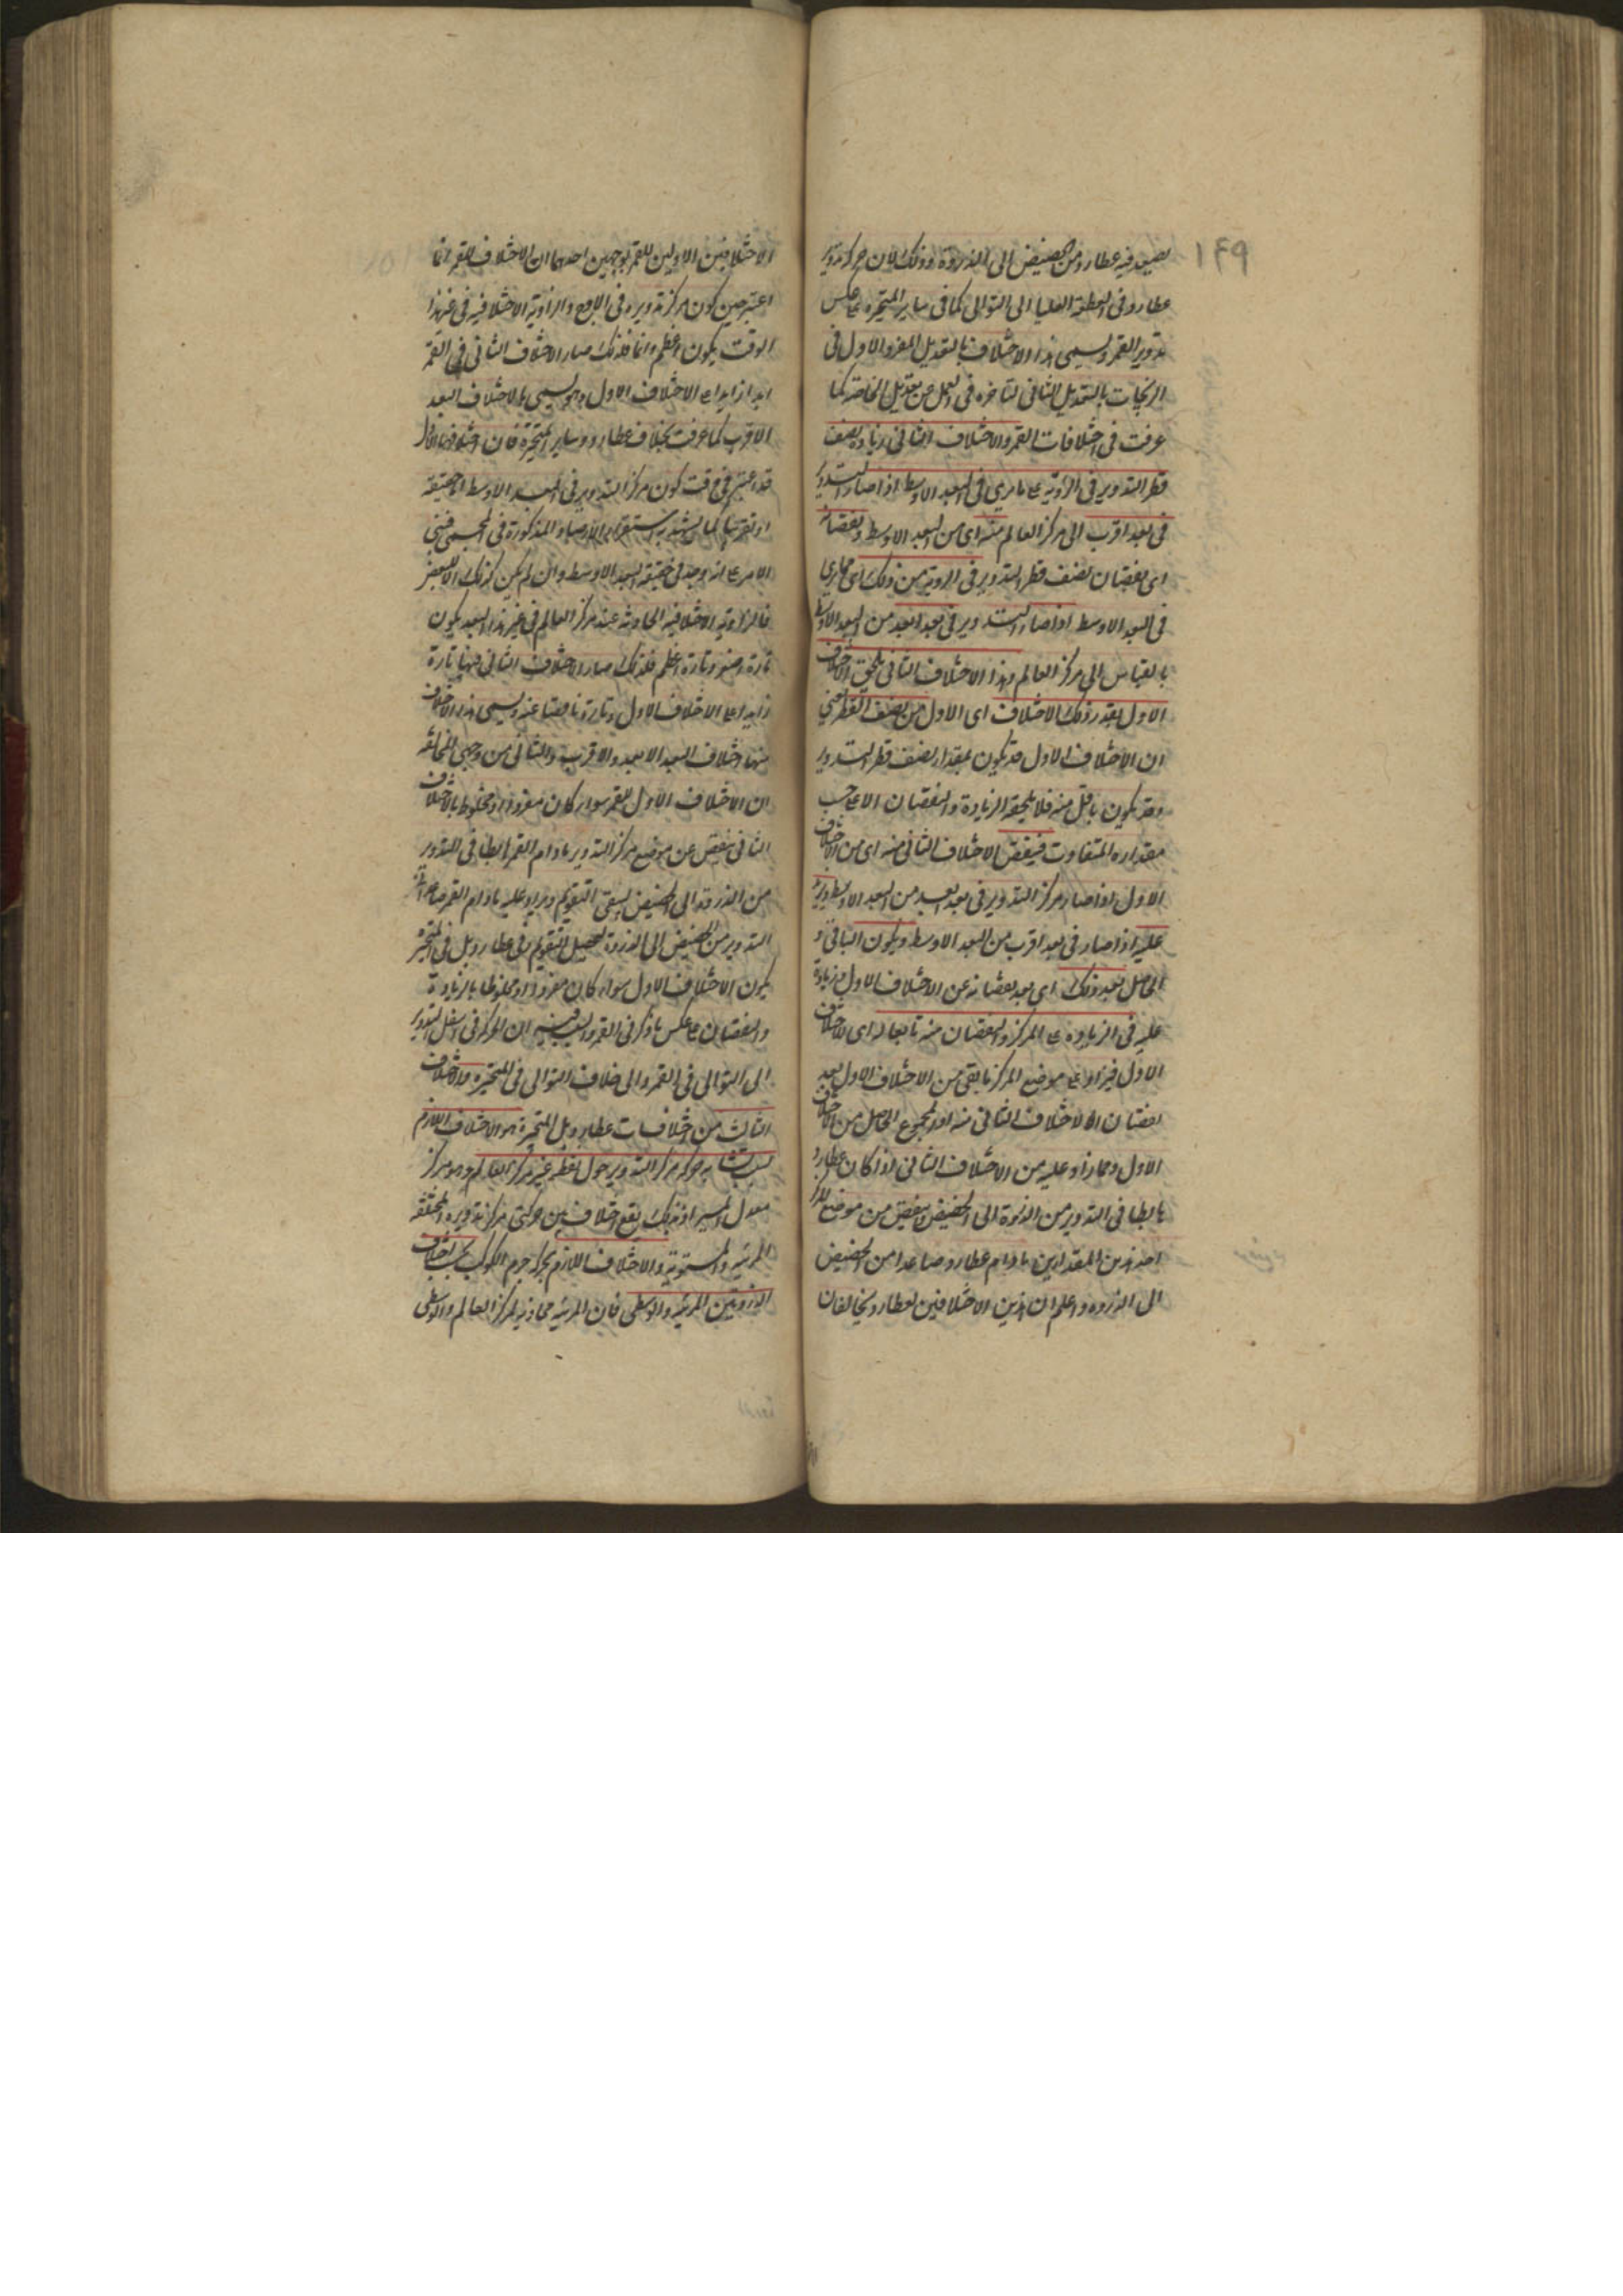 ١٤٩
يصعد فيه عطارد من الحضيض الى الذروة وذلك لان حركة تدوير
عطارد فى القطعة العليا الى التوالى كما فى ساير المتحيرة على عكس
تدوير القمر ويسمى هذا الاختلاف بالتعديل المفرد والاول فى
الزيجات بالتعديل الثانى لتاخره فى العمل عن تعديل الخاصة كما
عرفت فى اختلافات القمر والاختلاف الثانى زيادة نصف
قطر التدوير فى الروية على ما يرى فى البعد الاوسط اذا صار التدوير
فى بعد اقرب الى مركز العالم منه اى من البعد الاوسط ونقصانه
اى نقصان نصف قطر التدوير فى الروية من ذلك اى مما يرى
فى البعد الاوسط اذا صار التدوير فى بعد ابعد من البعد الاوسط
بالقياس الى مركز العالم وهذا الاختلاف الثانى يلحق الاختلاف
الاول بقدر ذلك الاختلاف اى الاول من نصف القطر يعنى
ان الاختلاف الاول قد يكون بمقدار نصف قطر التدوير
وقد يكون باقل منه فلا يلحقه الزيادة والنقصان الا على حسب
مقداره المتفاوت فينقص الاختلاف الثانى منه اى من الاختلاف
الاول اذا صار مركز التدوير فى بعد ابعد من البعد الاوسط ويزاد
عليه اذا صار فى بعد اقرب من البعد الاوسط ويكون الباقى و
الحاصل بعد ذلك اى بعد نقصانه عن الاختلاف الاول وزيادته
عليه فى الزيادة على المركز والنقصان منه تابعا له اى للاختلاف
الاول فيزاد على موضع المركز ما بقى من الاختلاف الاول بعد
نقصان الاختلاف الثانى منه او المجموع الحاصل من الاختلاف
الاول ومما زاد عليه من الاختلاف الثانى اذا كان عطارد
هابطا فى التدوير من الذروة الى الحضيض وينقص من موضع المركز
احد هذين المقدارين ما دام عطارد صاعدا من الحضيض
الى الذروه واعلم ان هذين الاختلافين لعطارد يخالفان
الاختلافين الاولين للقمر بوجهين احدهما ان الاختلاف للقمر انما
اعتبر حين كون مركز تدويره فى الاوج والزاوية الاختلافية فى غير هذا
الوقت يكون اعظم دائما فلذلك صار الاختلاف الثانى فى القمر
ابدا زايدا على الاختلاف الاول وهو يسمى بالاختلاف البعد
الاقرب كما عرفت بخلاف عطارد وساير المتحيرة فان اختلافها الاول
قد اعتبر فى وقت كون مركز التدوير فى البعد الاوسط اما حقيقة
او تقريبا لما يشهد به استقراء الارصاد المذكورة فى المجسطى فبنى
الامر على انه وجد فى حقيقة البعد الاوسط وان لم يكن كذلك الا لبعض
فالزاوية الاختلافية الحادثة عند مركز العالم فى غير هذا البعد يكون
تارة اصغر وتارة اعظم فلذلك صار الاختلاف الثانى فيها تارة
زايدا على الاختلاف الاول وتارة ناقصا عنه ويسمى هذا الاختلاف
منها اختلاف البعد الابعد والاقرب والثانى من وجهى المخالفة
ان الاختلاف الاول للقمر سواء كان مفردا او مخلوطا بالاختلاف
الثانى ينقص عن موضع مركز التدوير ما دام القمر هابطا فى التدوير
من الذروة الى الحضيض ليبقى التقويم ويزاد عليه ما دام القمر صاعدا
التدوير من الحضيض الى الذروة ليحصل التقويم وفى عطارد بل فى المتحيرة
يكون الاختلاف الاول سواء كان مفردا او مخلوطا بالزيادة
والنقصان على عكس ما ذكر فى القمر والسبب فيه ان الحركة فى اسفل التدوير
الى التوالى فى القمر والى خلاف التوالى فى المتحيرة والاختلاف
الثالث من اختلافات عطارد بل المتحيرة هو الاختلاف اللازم
بسبب تشابه حركة مركز التدوير حول نقطة غير مركز العالم وهو مركز
معدل المسير اذ بذلك يقع اختلاف بين حركتى مركز تدويره المختلفة
المرئية والمستوية والاختلاف اللازم بحركة جرم الكوكب بحسب اختلاف
الذروتين المرئية والوسطى فان المرئية محاذية لمركز العالم والوسطى